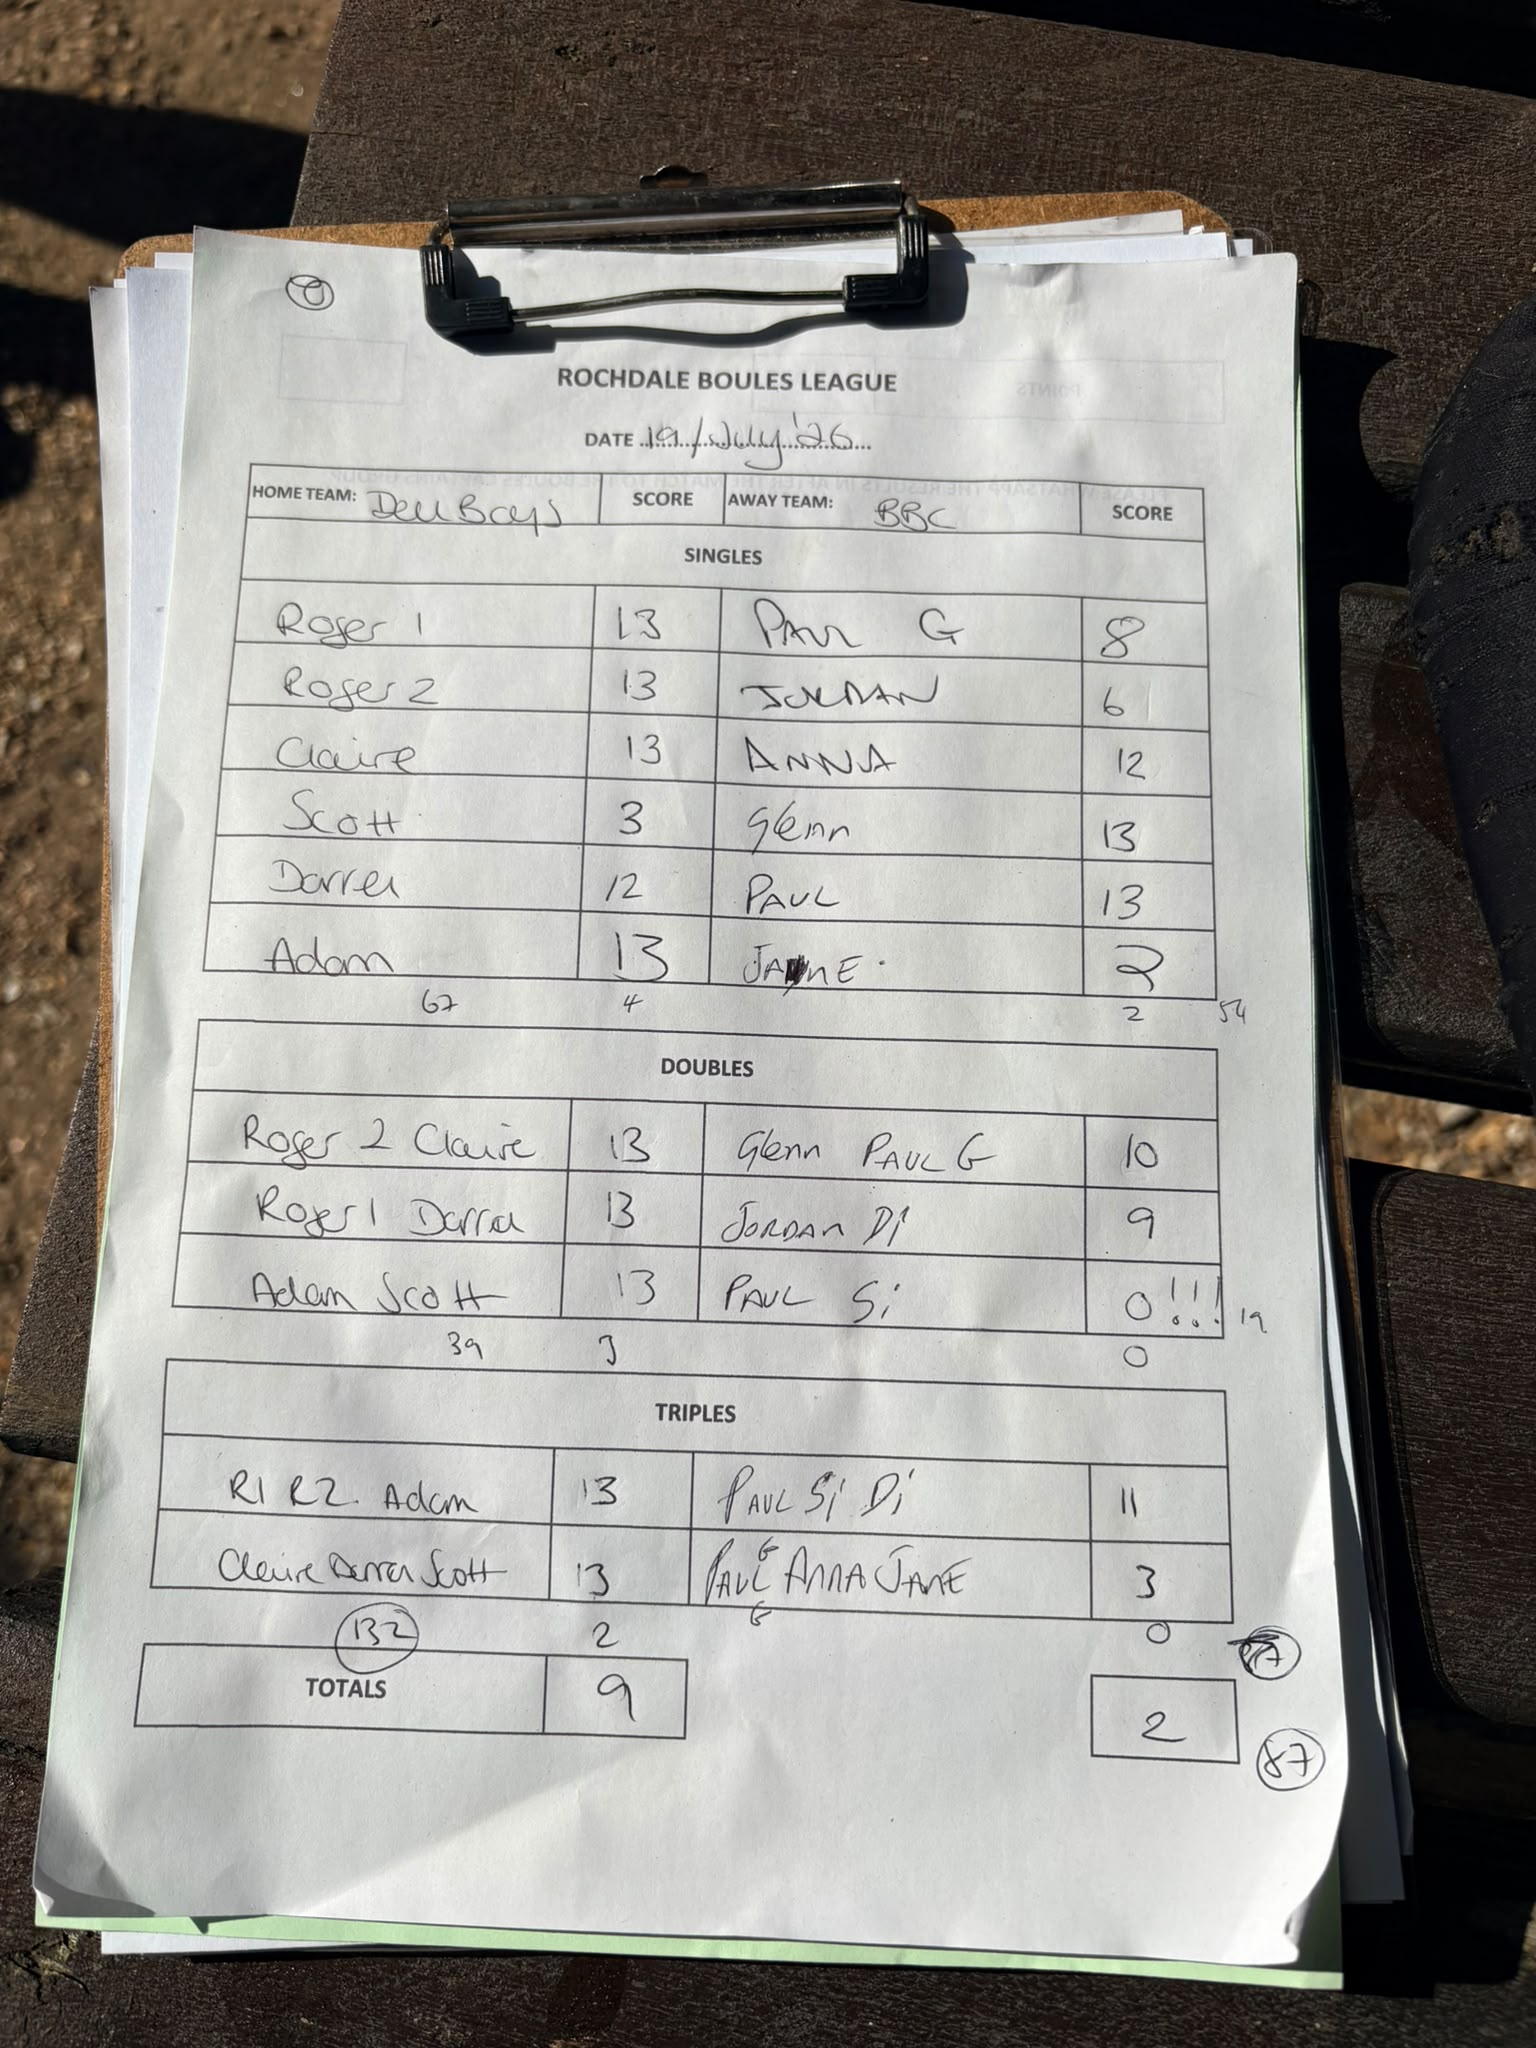 ROCHDALE BOULES LEAGUE
DATE 19/July '26
HOME TEAM: Dell Boys SCORE AWAY TEAM: BBC SCORE
SINGLES
Roger 1 13 PAUL G 8
Roger 2 13 JORDAN 6
Claire 13 ANNA 12
Scott 3 Glenn 13
Darren 12 PAUL 13
Adam 13 JANE 2
67 4 2 54
DOUBLES
Roger 2 Claire 13 Glenn PAUL G 10
Roger 1 Darren 13 JORDAN Di 9
Adam Scott 13 PAUL Si 0!!! 19
39 3 0
TRIPLES
R1 R2 Adam 13 PAUL Si Di 11
Claire Darren Scott 13 PAUL G ANNA JANE 3
G
132 2 0
TOTALS 9 2
87